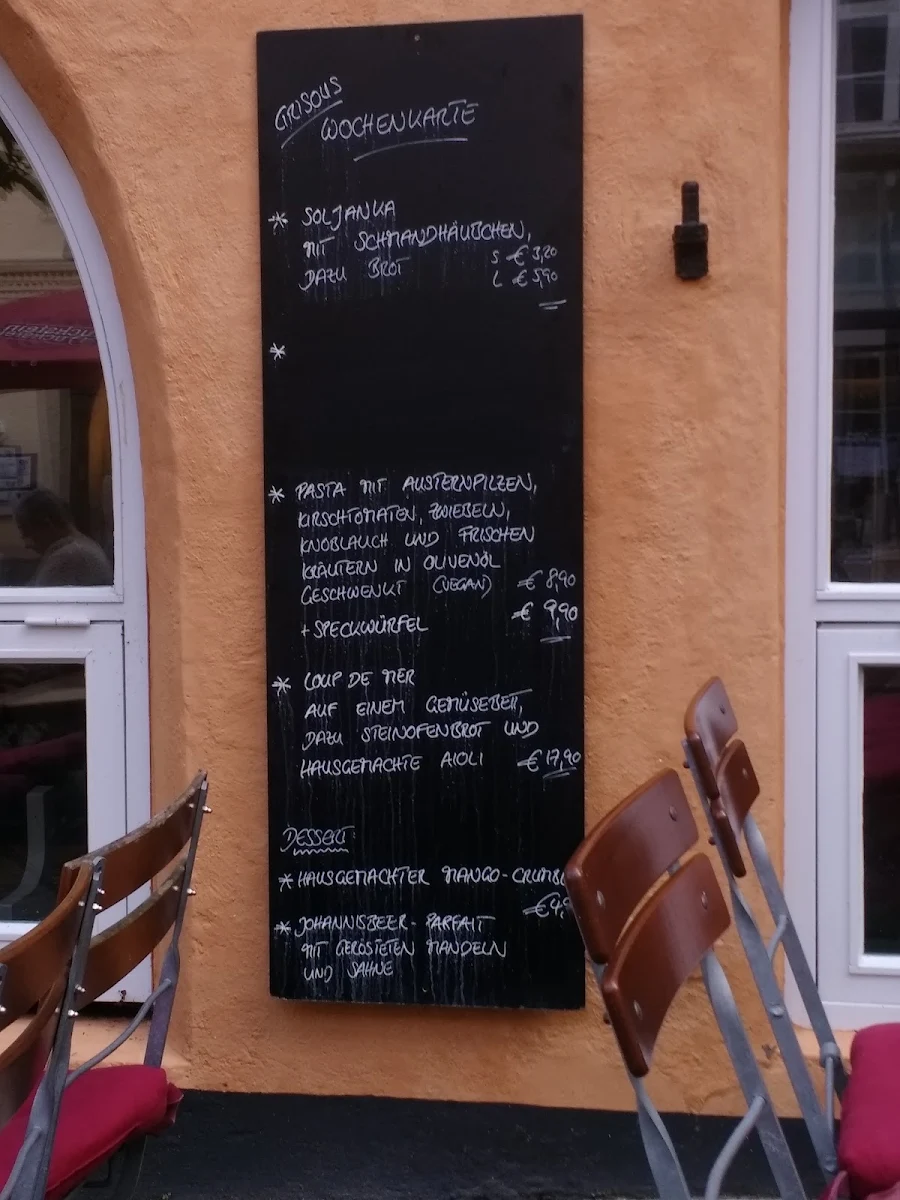 GRISOUS
WOCHENKARTE
* SOLJANKA
MIT SCHMANDHÄUBCHEN,
DAZU BROT S € 3,20
L € 5,90
*
* PASTA MIT AUSTERNPILZEN,
KIRSCHTOMATEN, ZWIEBELN,
KNOBLAUCH UND FRISCHEN
KRÄUTERN IN OLIVENÖL
GESCHWENKT (VEGAN) € 8,90
+ SPECKWÜRFEL € 9,90
* LOUP DE MER
AUF EINEM GEMÜSEBETT,
DAZU STEINOFENBROT UND
HAUSGEMACHTE AIOLI € 17,90
DESSERT:
* HAUSGEMACHTER MANGO-CRUMB
€ 4,9
* JOHANNISBEER-PARFAIT
MIT GERÖSTETEN MANDELN
UND SAHNE